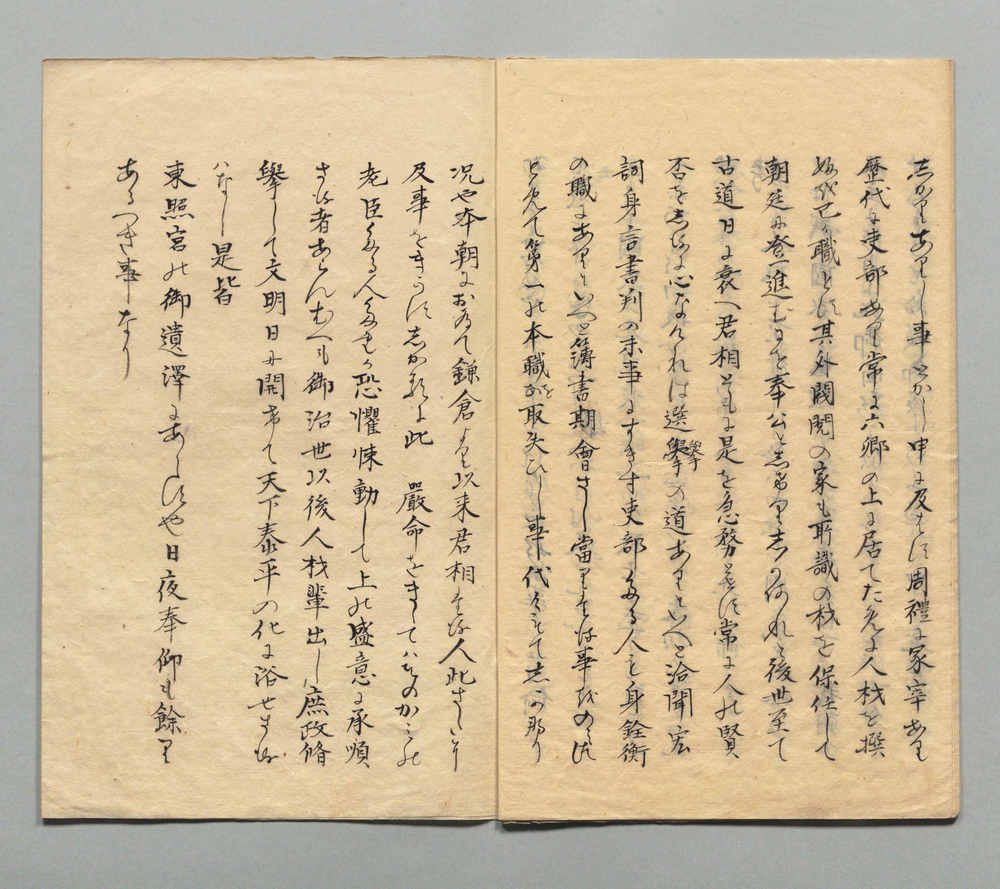 しかありし事とかし申に及はす周禮に冢宰あり
歴代に吏部あり常に六卿の上に居てたえす人材を撰
己か職とす其外閥閲の家も所識の材を保任して
朝廷に登進むるを奉公と志後世至て
古道日に衰へ君相ともに是を急務とせす常に人の賢
否を心なけれは選擧の道ありといへと洽聞宏
詞身言書判の末事にすきす吏部たる人も身銓衡
の職にありといへと簿書期會さし當りたる事を
て第一の本職を取失ひし事代々にて
況や本朝において鎌倉より以来君相たる人此さた
及事をきかすしかるに此 嚴命をきゝてハそのかみの
老臣たる人恐懼悚動して上の盛意に承順
さる者あらんむへも御治世以後人材輩出し庶政脩
擧して文明日に開けて天下泰平の化に浴せさる
ハなし是皆
東照宮の御遺澤にあらすや日夜奉仰も餘り
あるへき事なり